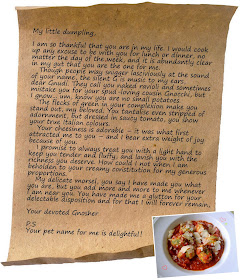 My little dumpling,
I am so thankful that you are in my life. I would cook
up any excuse to be with you for lunch or dinner, no
matter the day of the week, and it is abundantly clear
in my gut that you are the one for me.
Though people may snigger lasciviously at the sound
of your name, the silent G is music to my ears,
dear Gnudi. They call you naked ravioli and sometimes
mistake you for your spud-loving cousin Gnocchi, but
I gnow... um, know you are no small potatoes.
The flecks of green in your complexion make you
stand out, my beloved. You tantalise even stripped of
adornment, but dressed in saucy tomato, you show
your true Italian colours.
Your cheesiness is adorable – it was what first
attracted me to you – and I bear extra weight of joy
because of you.
I promise to always treat you with a light hand to
keep you tender and fluffy, and lavish you with the
richness you deserve. How could I not when I am
beholden to your creamy constitution for my generous
proportions.
My delicate morsel, you say I have made you what
you are, but you add more and more to me whenever
I am near you. You have made me a glutton for your
delectable disposition and for that I will forever remain,
Your devoted Gnosher
P.S.
Your pet name for me is delightful!!